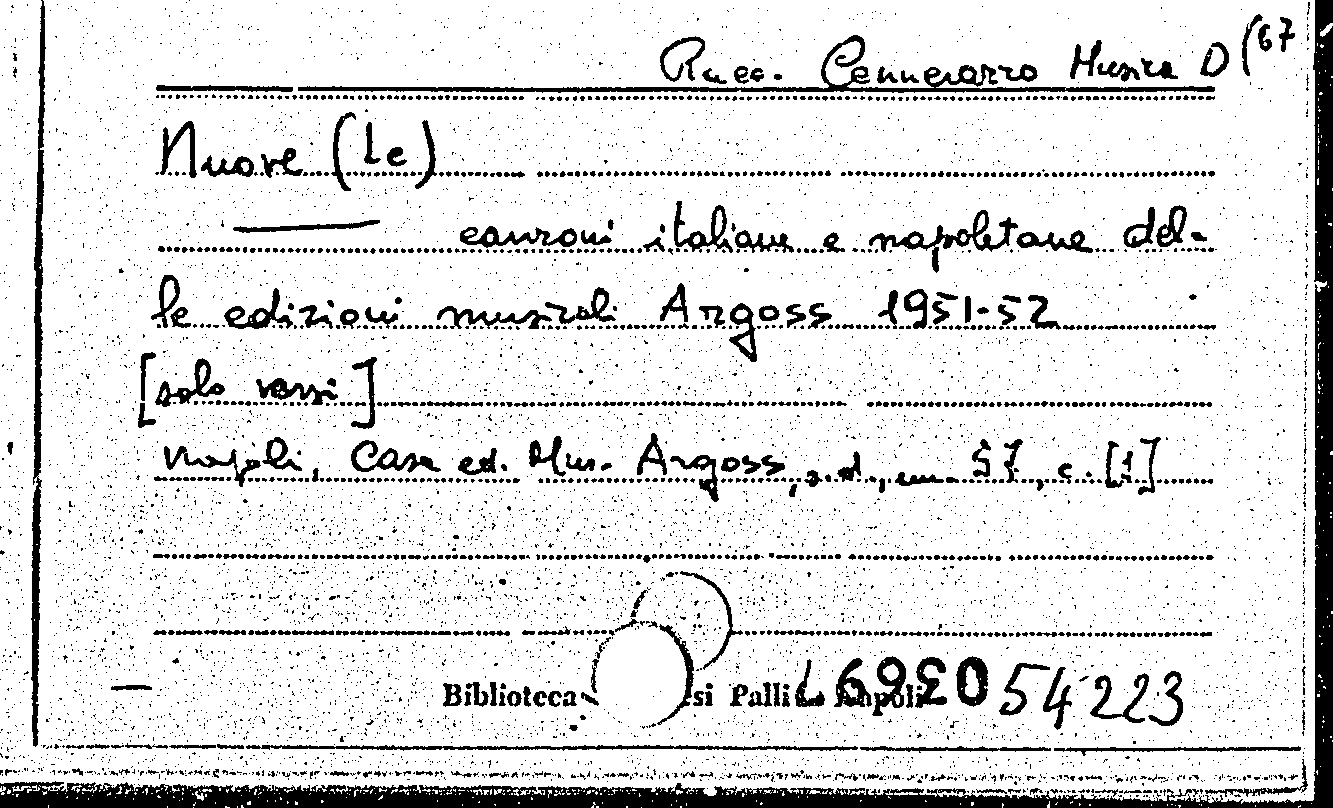 Racc. Cennerazzo Musica D (67
Nuove (Le)
— canzoni italiane e napoletane del-
le edizioni musicali Argoss 1951-52
[solo versi]
Napoli, Casa ed. Mus. Argoss, s.d., cm. 57, c. [1]
Biblioteca esi Palli Napoli
54223